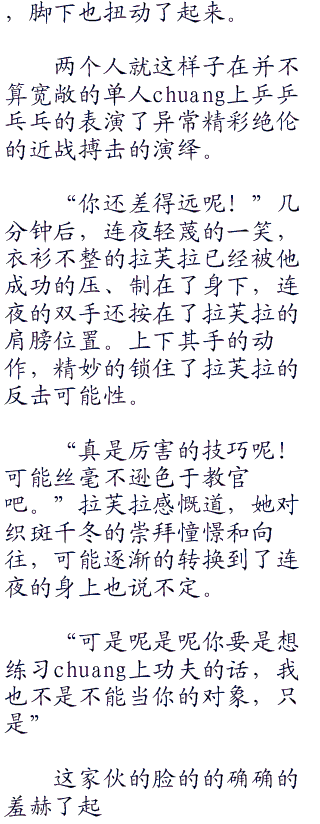 ，脚下也扭动了起来。
两个人就这样子在并不
算宽敞的单人chuang上乒乒
乓乓的表演了异常精彩绝伦
的近战搏击的演绎。
“你还差得远呢！”几
分钟后，连夜轻蔑的一笑，
衣衫不整的拉芙拉已经被他
成功的压、制在了身下，连
夜的双手还按在了拉芙拉的
肩膀位置。上下其手的动
作，精妙的锁住了拉芙拉的
反击可能性。
“真是厉害的技巧呢！
可能丝毫不逊色于教官
吧。”拉芙拉感慨道，她对
织斑千冬的崇拜憧憬和向
往，可能逐渐的转换到了连
夜的身上也说不定。
“可是呢是呢你要是想
练习chuang上功夫的话，我
也不是不能当你的对象，只
是”
这家伙的脸的的确确的
羞赫了起